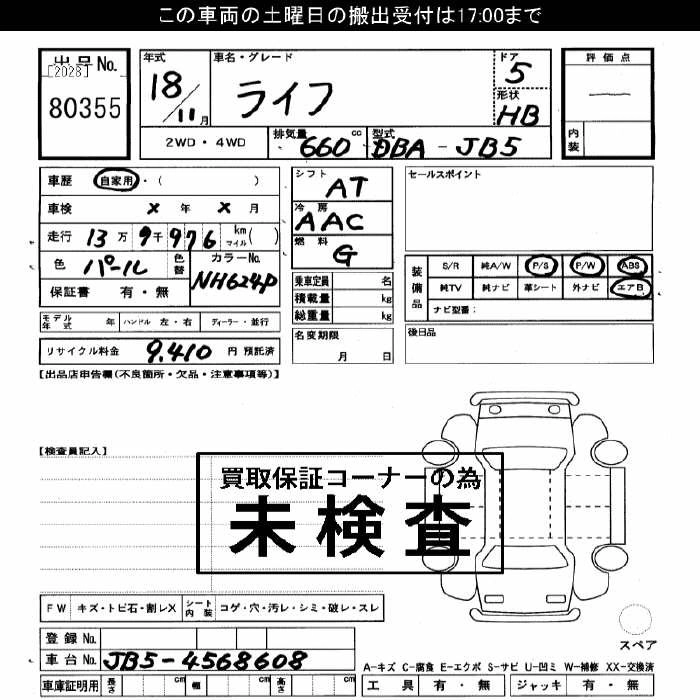 この車両の土曜日の搬出受付は17:00まで
出品No. [2028] 80355
年式 18/11月
車名・グレード ライフ
ドア 5
形状 HB
評価点 —
内装
2WD・4WD
排気量 660 cc
型式 DBA-JB5
車歴 自家用・( )
車検 × 年 × 月
走行 13万 9千 976 km マイル( )
色 パール 色替
カラーNo. NH624P
保証書 有・無
シフト AT
冷房 AAC
燃料 G
乗車定員 名
積載量 kg
総重量 kg
セールスポイント
装備品
S/R 純A/W P/S P/W ABS
純TV 純ナビ 革シート 外ナビ エアB
ナビ型番:
モデル年式 年 ハンドル 左・右 ディーラー・並行
リサイクル料金 9,410 円 預託済
名変期限 月 日
後日品
【出品店申告欄(不良箇所・欠品・注意事項等)】
【検査員記入】
買取保証コーナーの為
未検査
FW キズ・トビ石・割レX シート内装 コゲ・穴・汚レ・シミ・破レ・スレ
登録No.
車台No. JB5-4568608
車庫証明用 長さ cm 幅 cm 高さ cm
スペア
A-キズ C-腐食 E-エクボ S-サビ U-凹ミ W-補修 XX-交換済
工具 有・無 ジャッキ 有・無